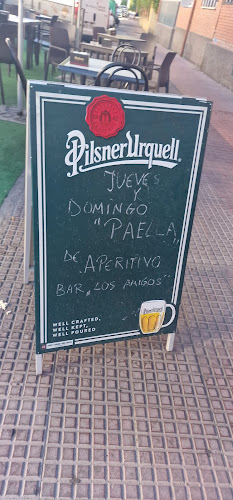 Pilsner Urquell
JUEVES
Y
DOMINGO
"PAELLA"
DE APERITIVO
BAR "LOS AMIGOS"
WELL CRAFTED,
WELL KEPT,
WELL POURED